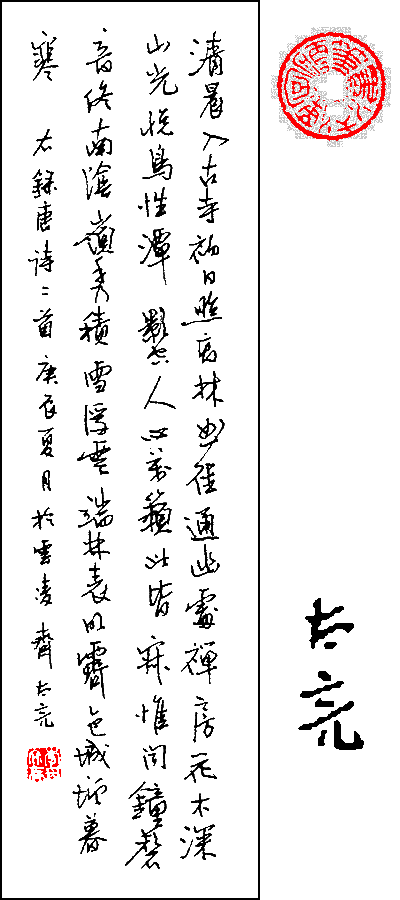 清晨入古寺初日照高林曲徑通幽處禪房花木深
山光悦鳥性潭影空人心萬籟此皆寂惟聞鐘磬
音終南陰嶺秀積雪浮雲端林表明霽色城增暮
寒 右録唐詩二首庚辰夏月於雲凌齋太亮
太亮